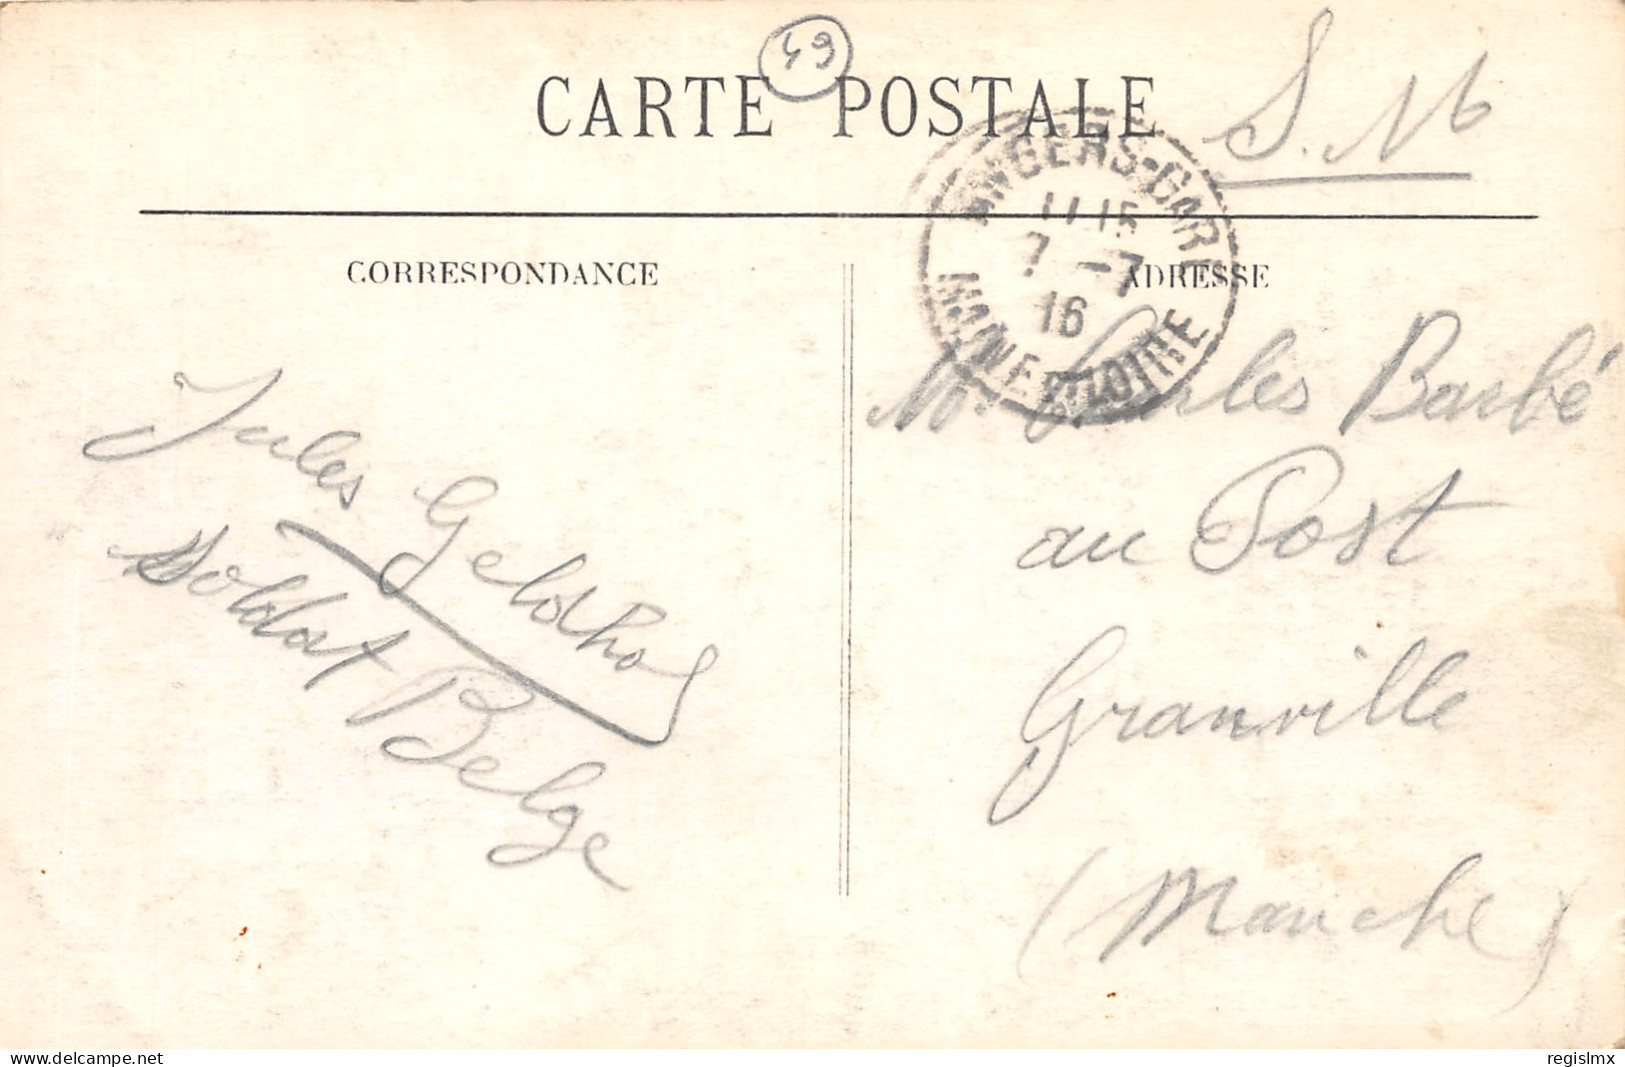 49
CARTE POSTALE
S. M
ANGERS-GARE
11 15
7 -7
16
MAINE ET LOIRE
CORRESPONDANCE
ADRESSE
Jules Geldhof
Soldat Belge
M. Charles Barbé
au Post
Granville
(Manche)
delcampe.net
regislmx